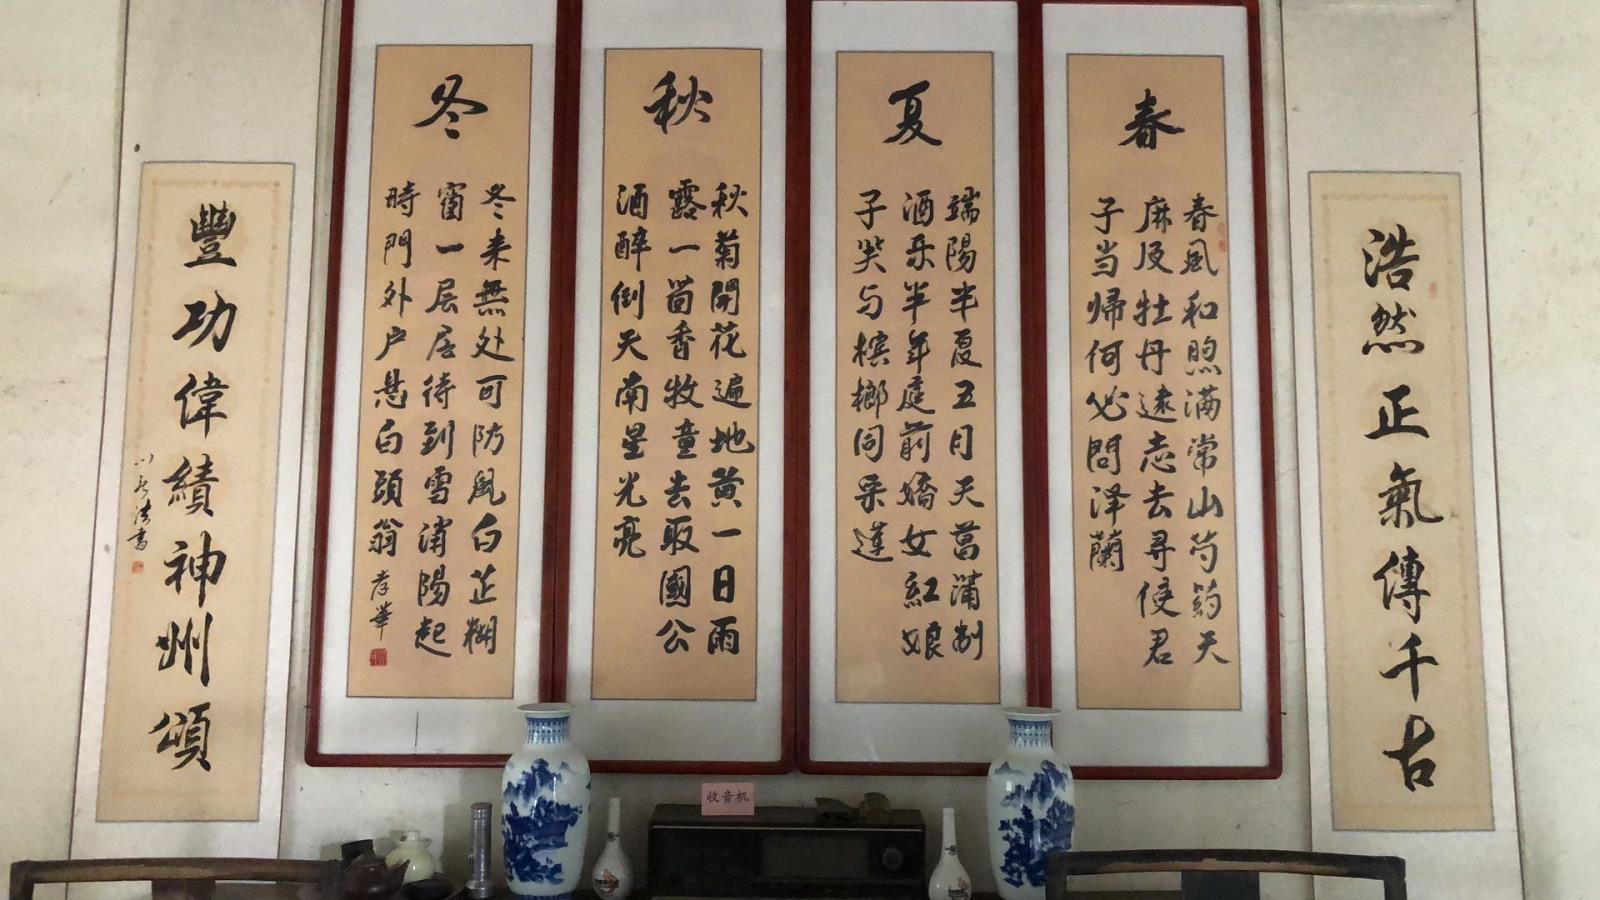 浩然正氣傳千古
春
春風和煦满常山芍药天
麻返牡丹遠志去尋使君
子当帰何必問泽蘭
夏
端陽半夏五月天菖蒲制
酒乐半年庭前嬌女紅娘
子笑与檳榔同采蓮
秋
秋菊開花遍地黄一日雨
露一茴香牧童去取國公
酒醉倒天南星光亮
冬
冬来無处可防風白芷糊
窗一层层待到雪消陽起
時門外户悬白頭翁
孝華
豐功偉績神州頌
收音机